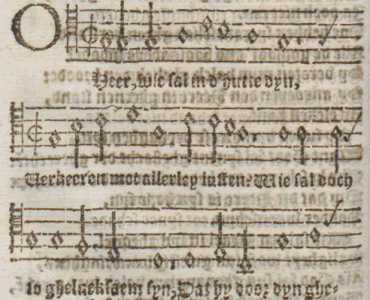 O
Heer, wie sal in d'hutte dyn,
Verheert met allerley lusten? Wie sal doch
so ghelucksaem syn, Dat hy door dyn ghe-